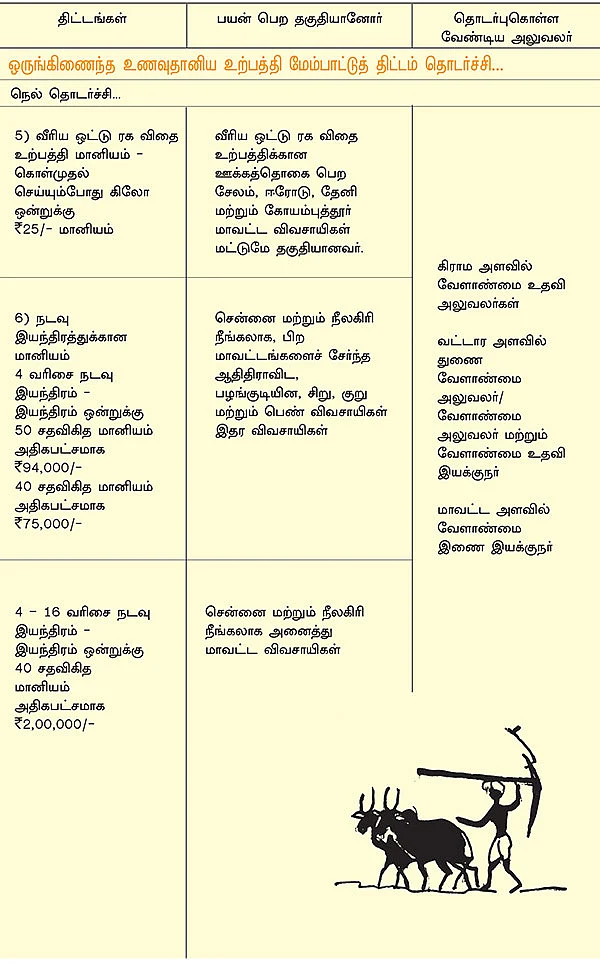 திட்டங்கள்
பயன் பெற தகுதியானோர்
தொடர்புகொள்ள
வேண்டிய அலுவலர்
ஒருங்கிணைந்த உணவுதானிய உற்பத்தி மேம்பாட்டுத் திட்டம் தொடர்ச்சி...
நெல் தொடர்ச்சி...
5) வீரிய ஒட்டு ரக விதை
உற்பத்தி மானியம் -
கொள்முதல்
செய்யும்போது கிலோ
ஒன்றுக்கு
₹25/- மானியம்
வீரிய ஒட்டு ரக விதை
உற்பத்திக்கான
ஊக்கத்தொகை பெற
சேலம், ஈரோடு, தேனி
மற்றும் கோயம்புத்தூர்
மாவட்ட விவசாயிகள்
மட்டுமே தகுதியானவர்.
6) நடவு
இயந்திரத்துக்கான
மானியம்
4 வரிசை நடவு
இயந்திரம் -
இயந்திரம் ஒன்றுக்கு
50 சதவிகித மானியம்
அதிகபட்சமாக
₹94,000/-
40 சதவிகித மானியம்
அதிகபட்சமாக
₹75,000/-
சென்னை மற்றும் நீலகிரி
நீங்கலாக, பிற
மாவட்டங்களைச் சேர்ந்த
ஆதிதிராவிட,
பழங்குடியின, சிறு, குறு
மற்றும் பெண் விவசாயிகள்
இதர விவசாயிகள்
4 - 16 வரிசை நடவு
இயந்திரம் -
இயந்திரம் ஒன்றுக்கு
40 சதவிகித
மானியம்
அதிகபட்சமாக
₹2,00,000/-
சென்னை மற்றும் நீலகிரி
நீங்கலாக அனைத்து
மாவட்ட விவசாயிகள்
கிராம அளவில்
வேளாண்மை உதவி
அலுவலர்கள்
வட்டார அளவில்
துணை
வேளாண்மை
அலுவலர்/
வேளாண்மை
அலுவலர் மற்றும்
வேளாண்மை உதவி
இயக்குநர்
மாவட்ட அளவில்
வேளாண்மை
இணை இயக்குநர்